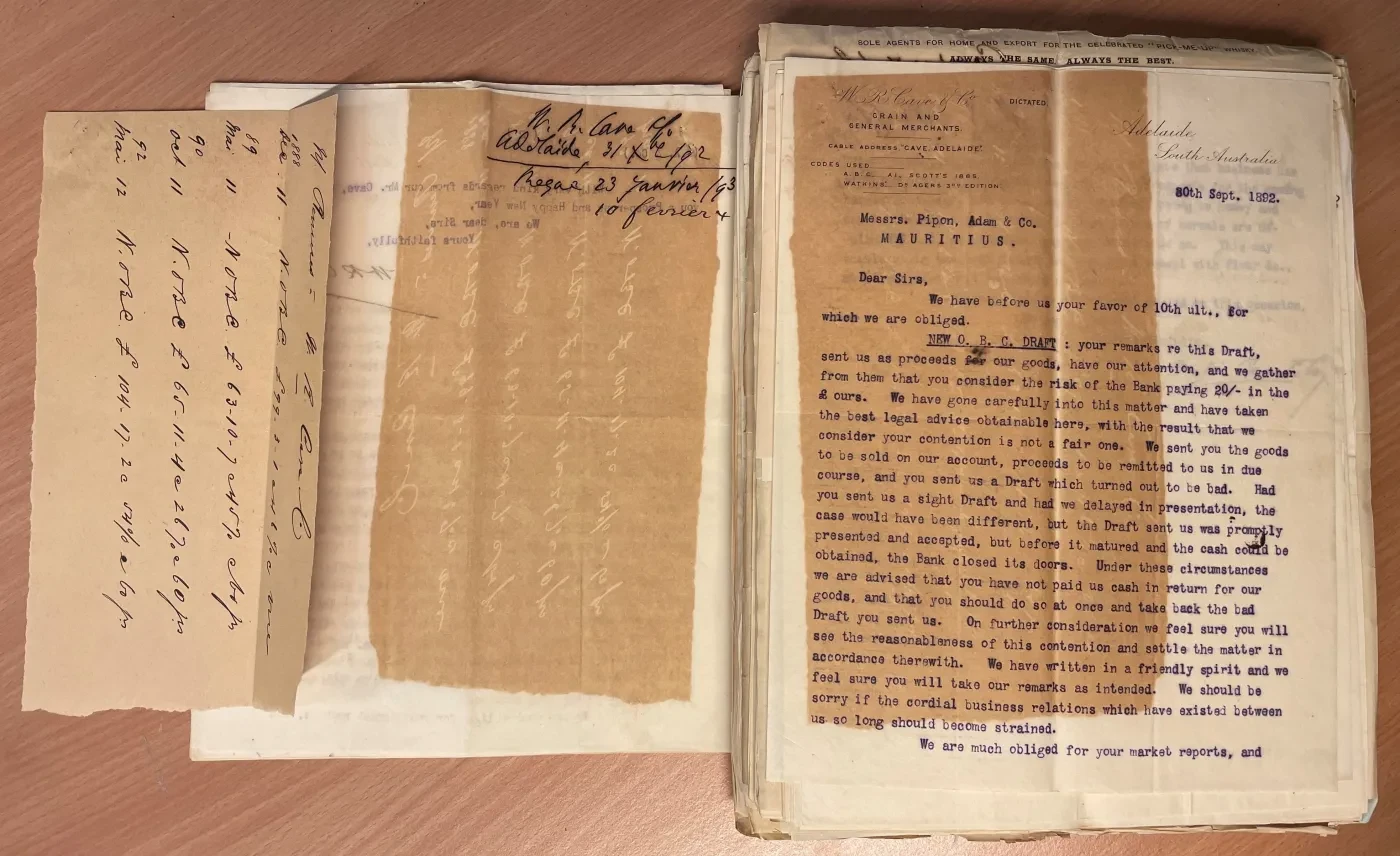 W. R. Cave Co.
Adelaide, 31 Xbre/92
Reçue, 23 Janvier/93
10 fevrier
W R Cave C
1888
Dec. 11 - N. O B C £
89
Mai 11 - N. O B C. £ 63-10-7
90
Oct 11 N. O B C £ 65-11-4
92
Mai 12 N. O B C. £ 104-17-2
kind regards from our Mr. Cave,
and Happy New Year,
We are, dear Sirs,
Yours faithfully,
SOLE AGENTS FOR HOME AND EXPORT FOR THE CELEBRATED "PICK-ME-UP" WHISKY
ALWAYS THE SAME, ALWAYS THE BEST.
W. R. Cave & Co.
DICTATED
GRAIN AND
GENERAL MERCHANTS.
CABLE ADDRESS "CAVE, ADELAIDE"
CODES USED
A.B.C. A1. SCOTT'S 1885.
WATKINS' DO AGERS 3RD EDITION.
Adelaide,
South Australia
30th Sept. 1892.
Messrs. Pipon, Adam & Co.
MAURITIUS.
Dear Sirs,
We have before us your favor of 10th ult., for
which we are obliged.
NEW O. B. C. DRAFT : your remarks re this Draft,
sent us as proceeds for our goods, have our attention, and we gather
from them that you consider the risk of the Bank paying 20/- in the
£ ours. We have gone carefully into this matter and have taken
the best legal advice obtainable here, with the result that we
consider your contention is not a fair one. We sent you the goods
to be sold on our account, proceeds to be remitted to us in due
course, and you sent us a Draft which turned out to be bad. Had
you sent us a sight Draft and had we delayed in presentation, the
case would have been different, but the Draft sent us was promptly
presented and accepted, but before it matured and the cash could be
obtained, the Bank closed its doors. Under these circumstances
we are advised that you have not paid us cash in return for our
goods, and that you should do so at once and take back the bad
Draft you sent us. On further consideration we feel sure you will
see the reasonableness of this contention and settle the matter in
accordance therewith. We have written in a friendly spirit and we
feel sure you will take our remarks as intended. We should be
sorry if the cordial business relations which have existed between
us so long should become strained.
We are much obliged for your market reports, and